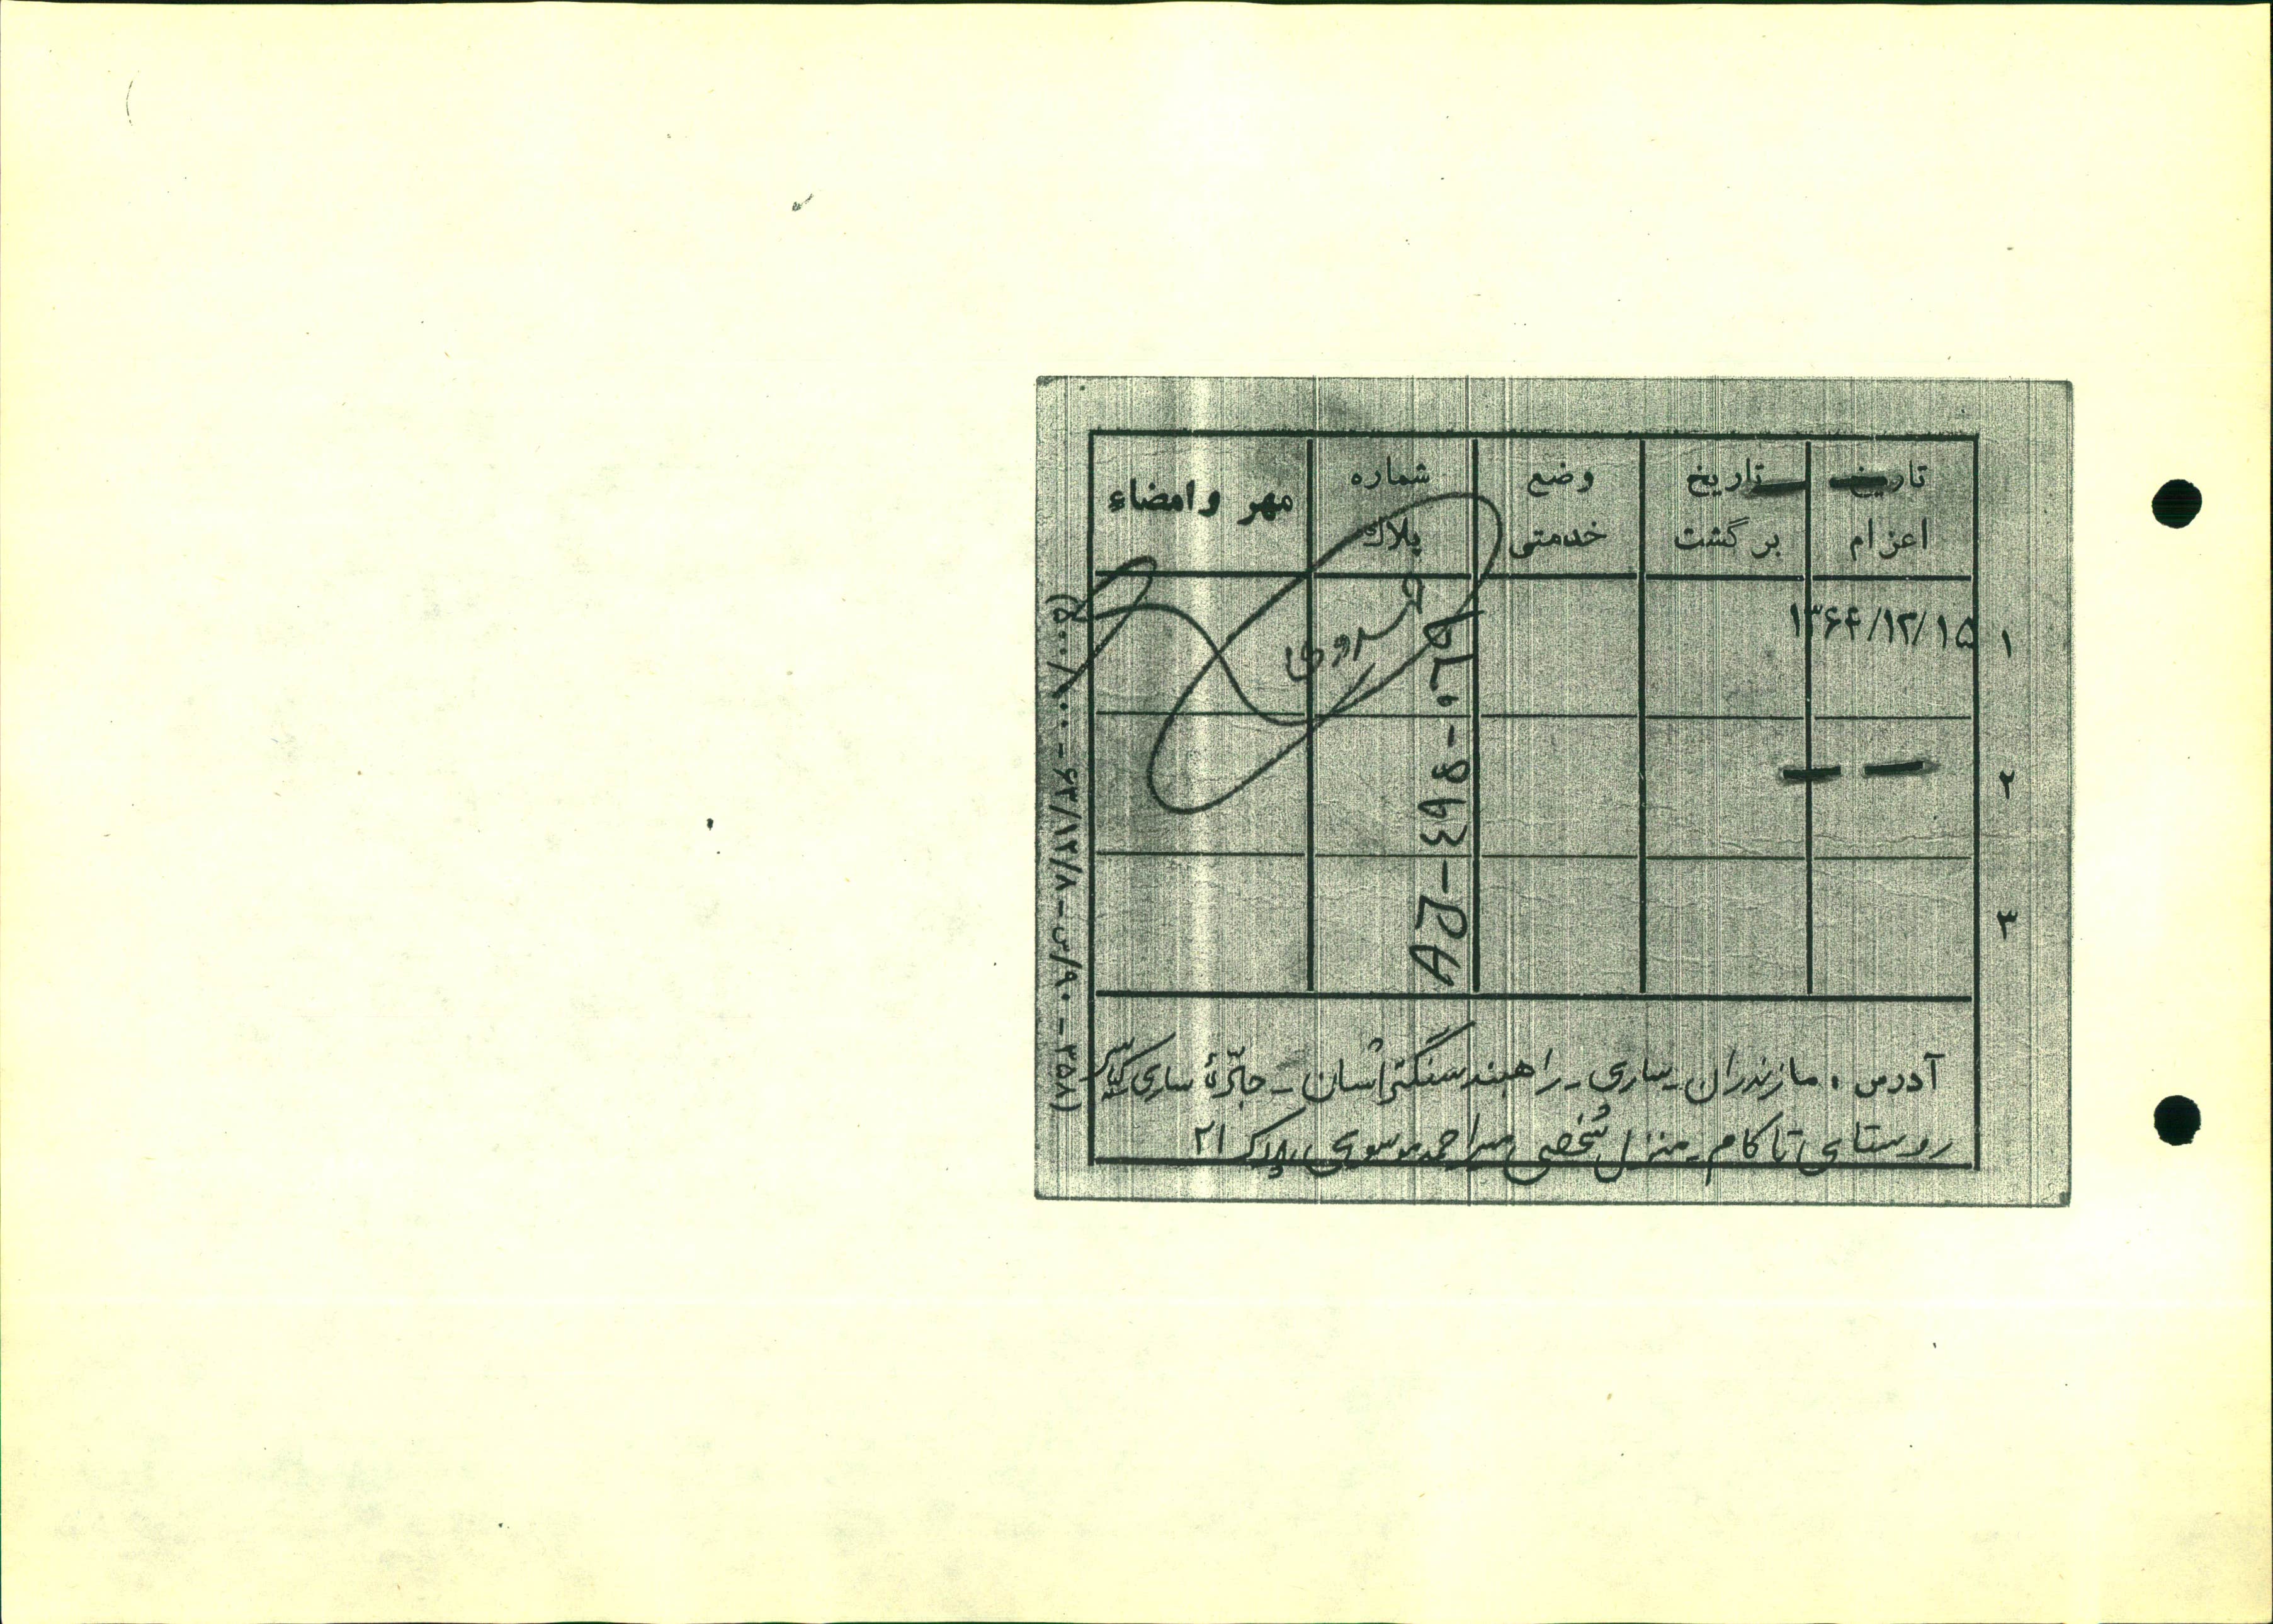 تاریخ اعزام
تاریخ برگشت
وضع خدمتی
شماره پلاک
مهر و امضاء
۱
۱۳۶۴/۱۲/۱۵
۲
۳
آدرس : مازندران - ساری - راهبند سنگتراشان - جادّۀ ساری
روستای تاکام - منزل شخصی میراحمد موسوی پلاک ۲۱